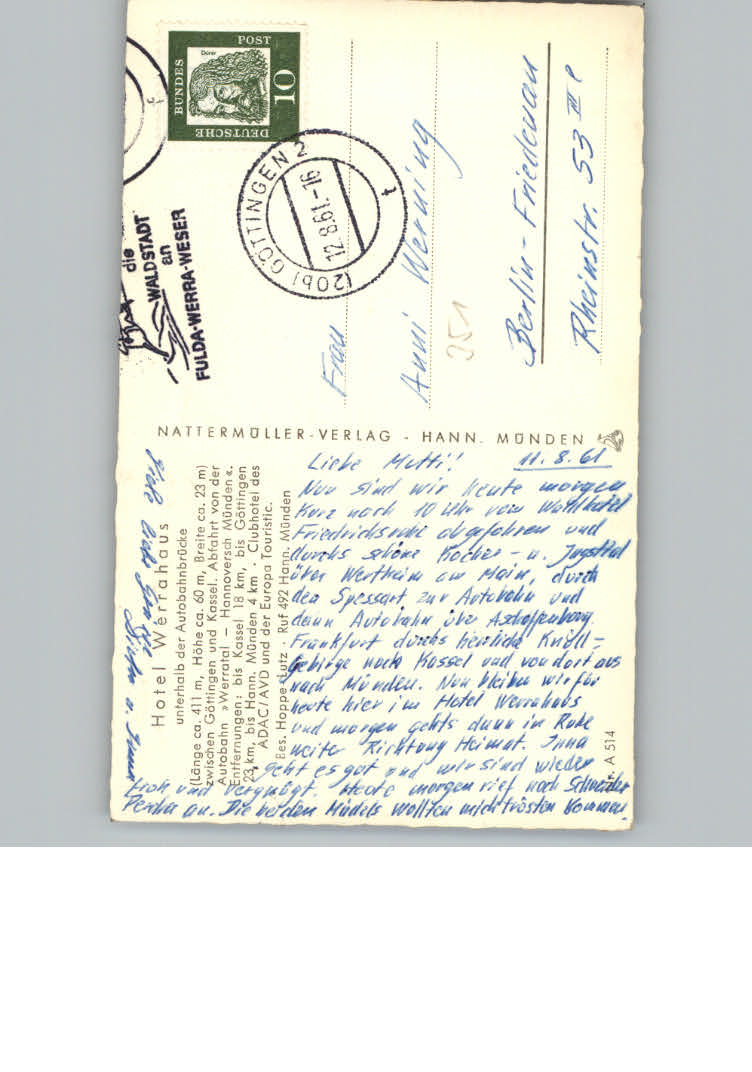 Hotel Werrahaus
unterhalb der Autobahnbrücke
(Länge ca. 411 m, Höhe ca. 60 m, Breite ca. 23 m)
zwischen Göttingen und Kassel. Abfahrt von der
Autobahn »Werratal – Hannoversch Münden«.
Entfernungen: bis Kassel 18 km, bis Göttingen
23 km, bis Hann. Münden 4 km · Clubhotel des
ADAC/AVD und der Europa Touristic.
Bes. Hoppe-Lutz · Ruf 492 Hann. Münden
NATTERMÜLLER-VERLAG - HANN. MÜNDEN
Nr. A 514
11.8.61
Liebe Mutti!
Nun sind wir heute morgen
kurz nach 10 Uhr vom Waldhotel
Friedrichsruhe abgefahren und
durchs schöne Kocher- u. Jagsttal
über Wertheim am Main, durch
den Spessart zur Autobahn und
dann Autobahn über Aschaffenburg,
Frankfurt durchs herrliche Knüll-
Gebirge nach Kassel und von dort aus
nach Münden. Nun bleiben wir für
heute hier im Hotel Werrahaus
und morgen gehts dann in Ruhe
weiter Richtung Heimat. Inna
geht es gut und wir sind wieder
froh und vergnügt. Heute morgen rief noch
an. Die beiden Mädels wollten mich trösten kommen.
Viele liebe
Dieter u. Inna
DEUTSCHE BUNDESPOST
Dürer
10
(20b) GÖTTINGEN 2
12.8.61.-16
t
die
WALDSTADT
an
FULDA-WERRA-WESER
Frau
Anni Werning
251
Berlin-Friedenau
Rheinstr. 53 III